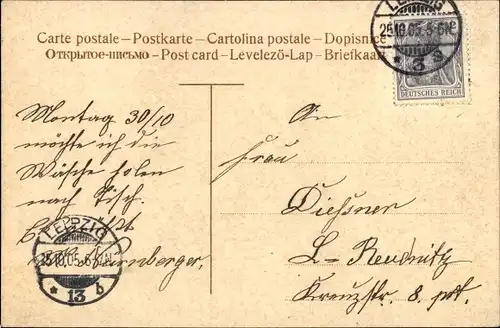 Carte postale – Postkarte – Cartolina postale – Dopisnice
Открытое-письмо – Post card – Levelezö-Lap – Briefkaart
LEIPZIG
25.10.05.5-6N.
* 3 s
DEUTSCHES REICH
Montag 30/10
möchte ich die
Wäsche holen
nach Tisch.
Nürnberger.
LEIPZIG
25.10.05.5-6N.
* 13 b
An
Frau
Diessner
L-Reudnitz
Kreuzstr. 8. pt.